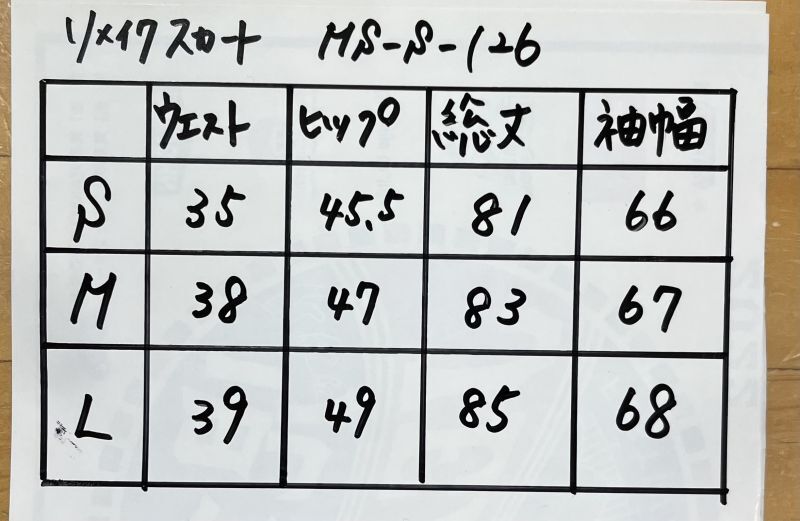 リメイクスカート MS-S-126
ウエスト ヒップ 総丈 袖幅
S 35 45.5 81 66
M 38 47 83 67
L 39 49 85 68